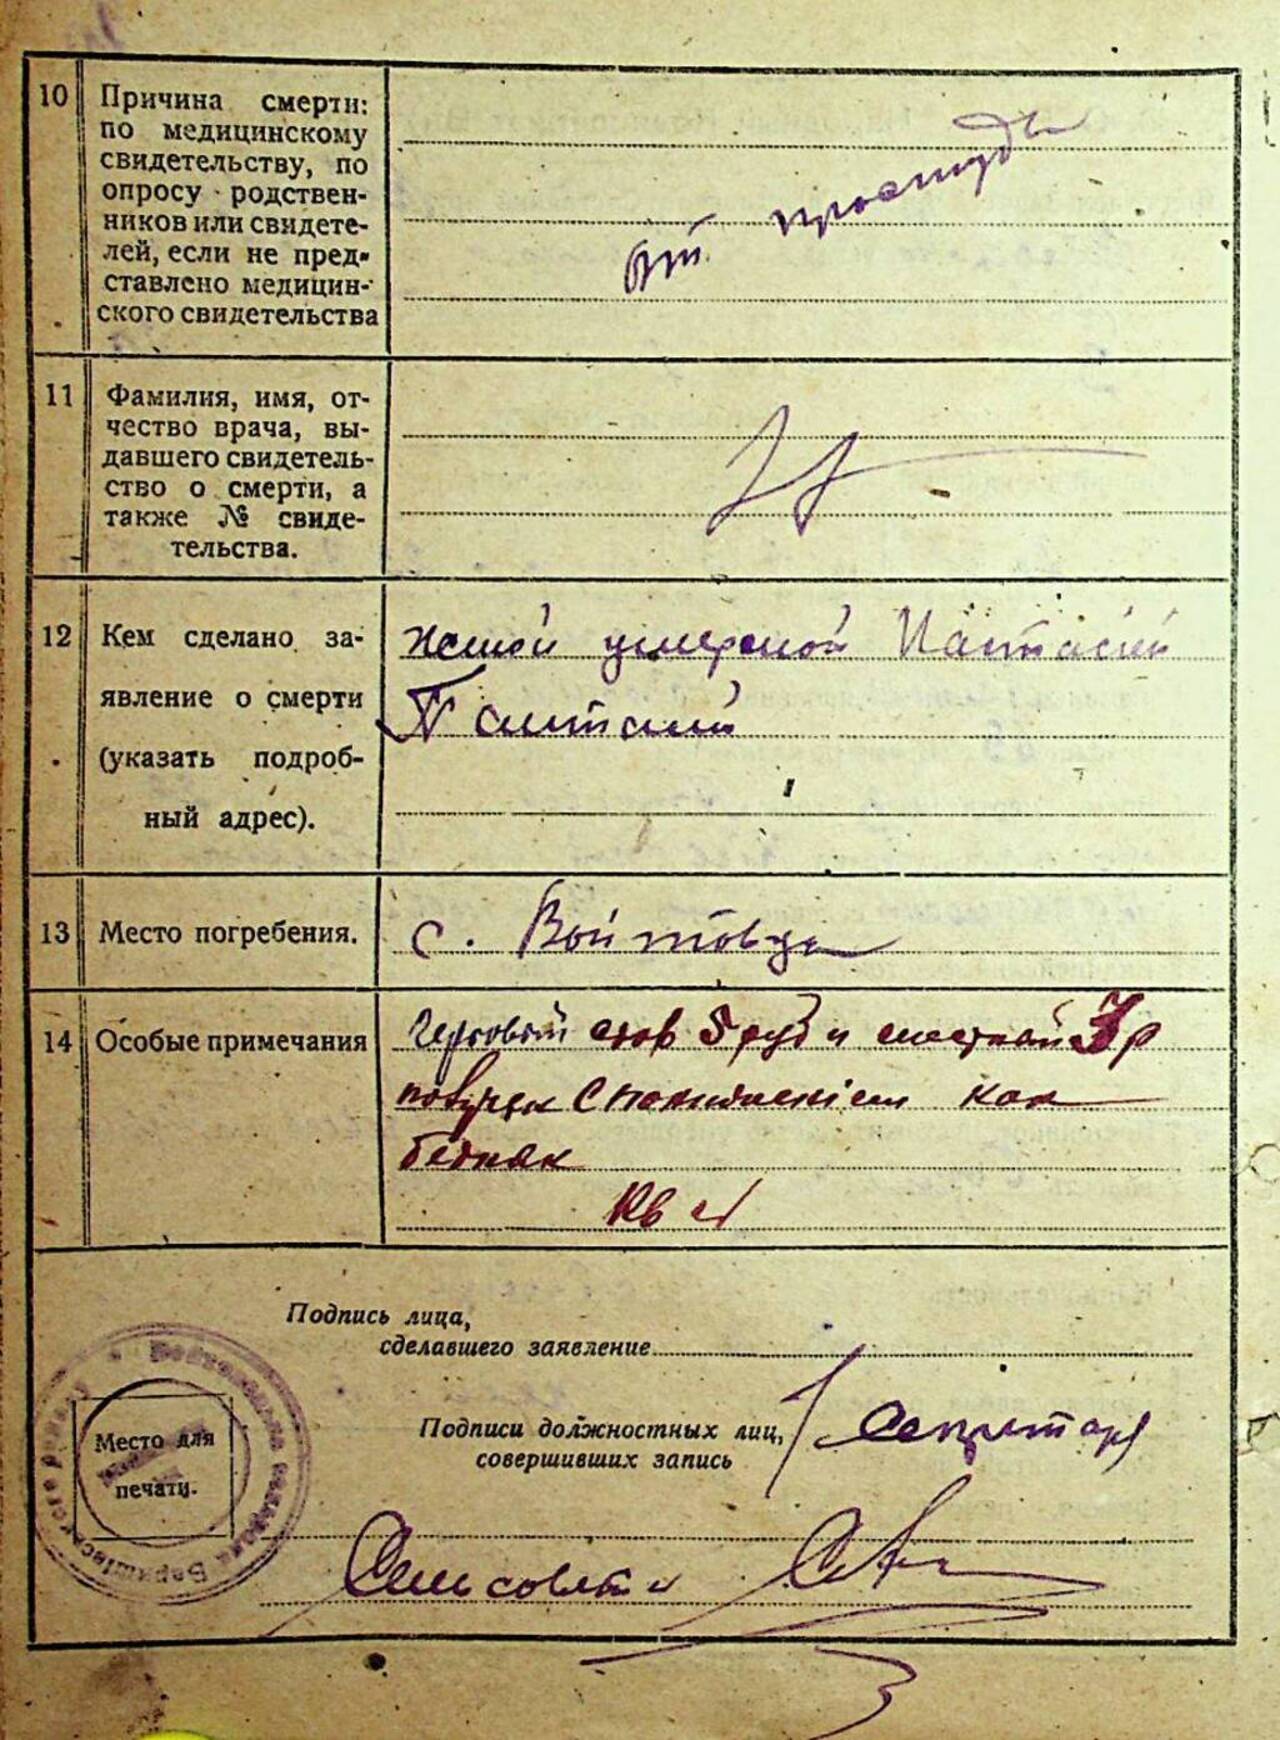 10 Причина смерти:
по медицинскому
свидетельству, по
опросу родствен-
ников или свидете-
лей, если не пред-
ставлено медицин-
ского свидетельства
от простуды
11 Фамилия, имя, от-
чество врача, вы-
давшего свидетель-
ство о смерти, а
также № свиде-
тельства.
12 Кем сделано за-
явление о смерти
(указать подроб-
ный адрес).
женой умершой
13 Место погребения.
с. Войтовци
14 Особые примечания
5 руб и 3 р
как
бедняк
Подпись лица,
сделавшего заявление
Подписи должностных лиц,
совершивших запись
Секретарь
Сельсовета
Место для
печати.